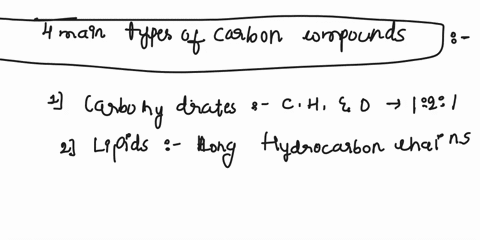 4 main types of carbon compounds :-
1] Carbohydrates :- C.H. & O → 1:2:1
2] Lipids :- Long Hydrocarbon chains